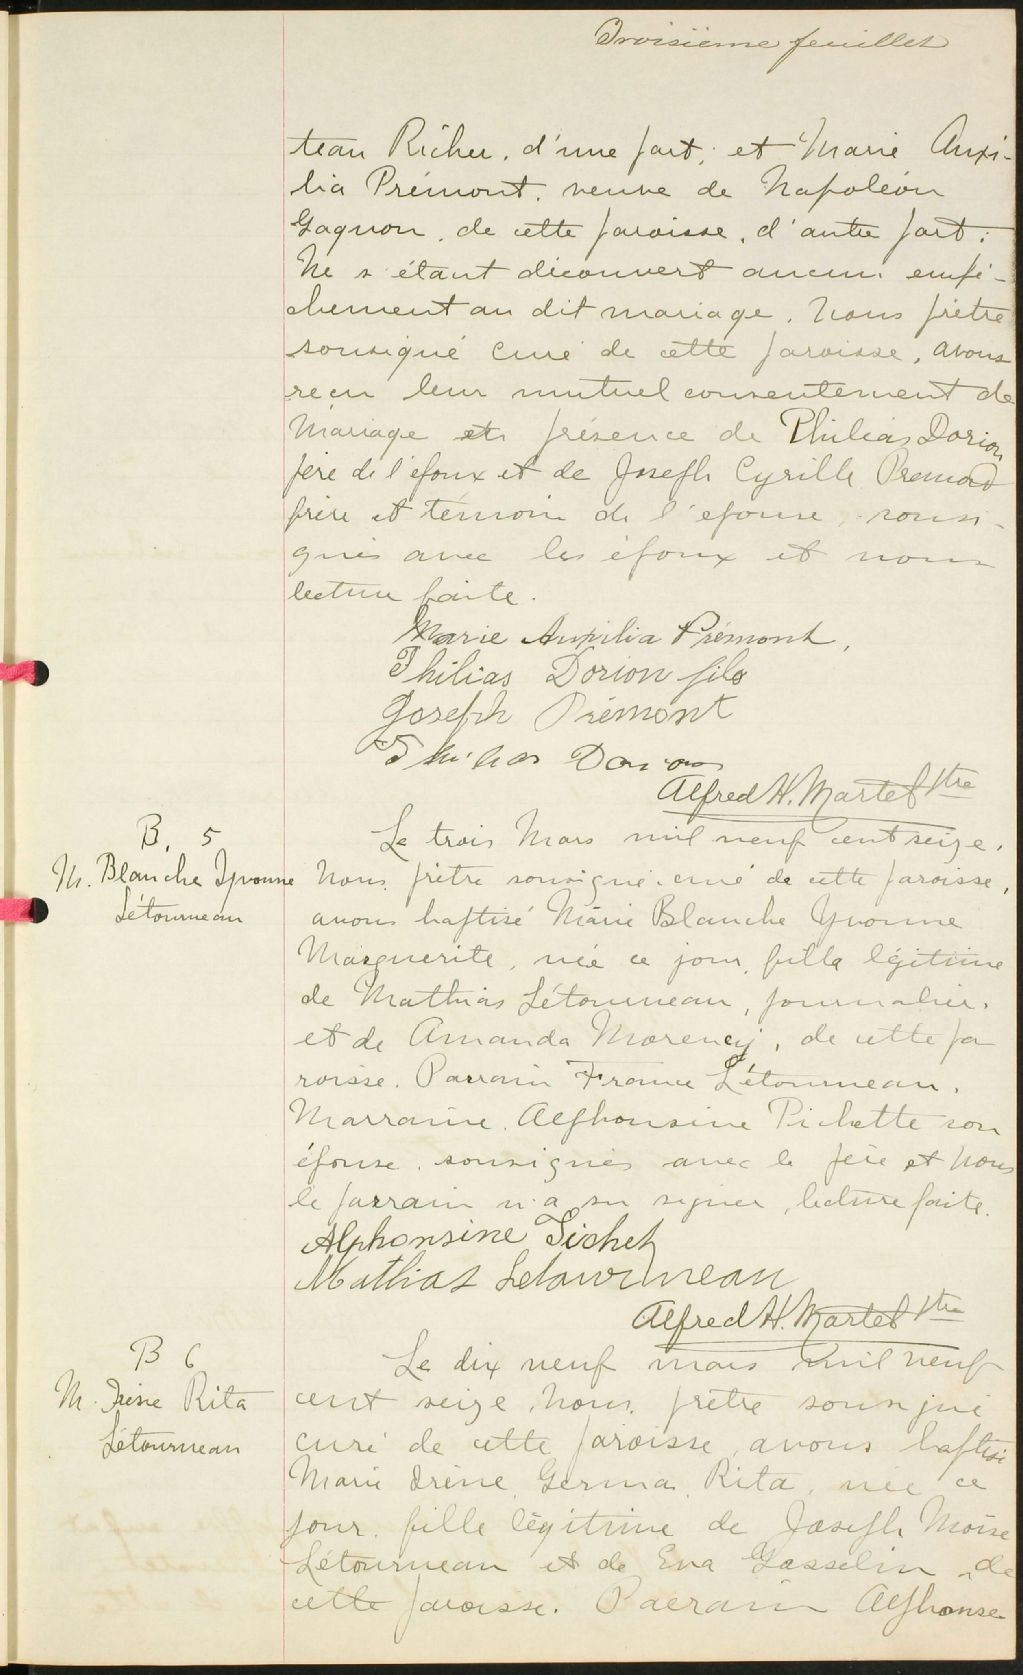 Troisième feuillet
teau Richer, d'une part; et Marie Auxi-
lia Prémont, veuve de Napoléon
Gagnon, de cette paroisse, d'autre part;
Ne s'étant découvert aucun empê-
chement au dit mariage, Nous prêtre
soussigné curé de cette paroisse, avons
reçu leur mutuel consentement de
Mariage en présence de Philias Dorion
père de l'époux et de Joseph Cyrille Premont
frère et témoin de l'épouse, soussi-
gnés avec les époux et nous
lecture faite.
Marie Auxilia Prémont,
Philias Dorion fils
Joseph Prémont
Philias Dorion
Alfred H. Martel Ptre
B. 5
M. Blanche Yvonne
Létourneau
Le trois Mars mil neuf cent seize,
Nous, prêtre soussigné curé de cette paroisse,
avons baptisé Marie Blanche Yvonne
Marguerite, née ce jour, fille légitime
de Mathias Létourneau, journalier,
et de Amanda Morency, de cette pa
roisse. Parrain France Létourneau,
Marraine, Alphonsine Pichette son
épouse, soussignés avec le père et Nous
le parrain n'a su signer, lecture faite.
Alphonsine Pichet
Mathias Letourneau
Alfred H. Martel Ptre
B 6
M. Irène Rita
Létourneau
Le dix neuf mars mil neuf
cent seize, Nous, prêtre soussigné
curé de cette paroisse, avons baptisé
Marie Irène, Germa, Rita, née ce
jour, fille légitime de Joseph Moïse
Létourneau et de Eva Gosselin, de
cette paroisse. Parrain Alphonse